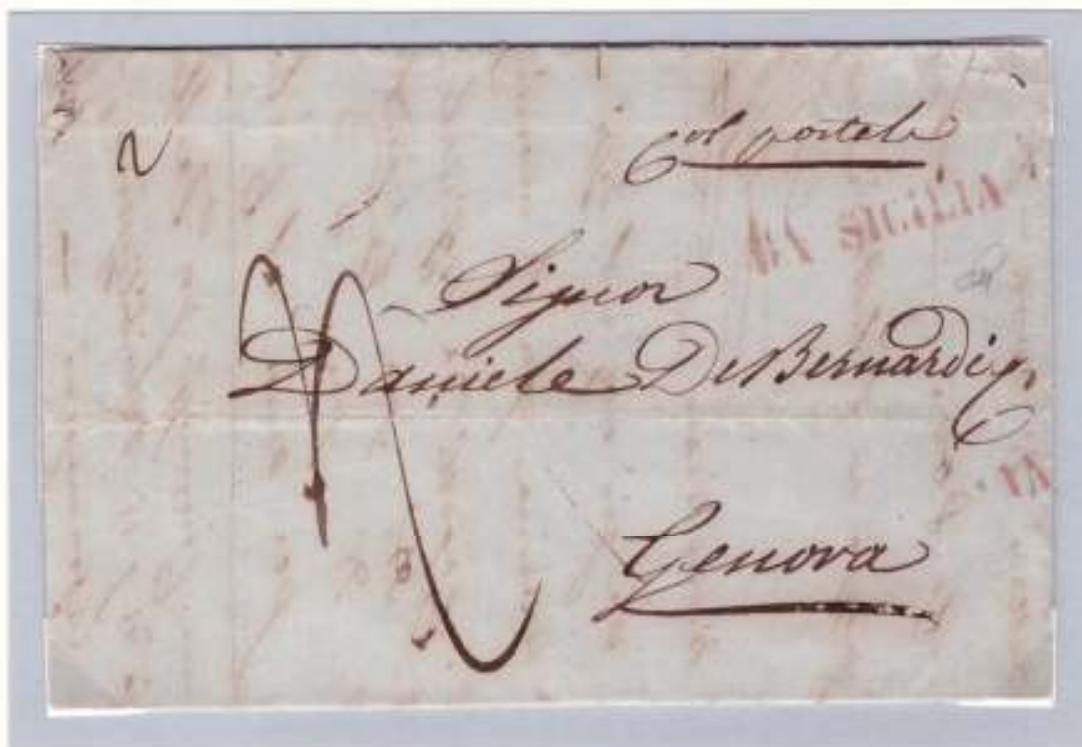 Col postale
VIA SICILIA
Signor
Daniele De Bernardi
Genova
VIA